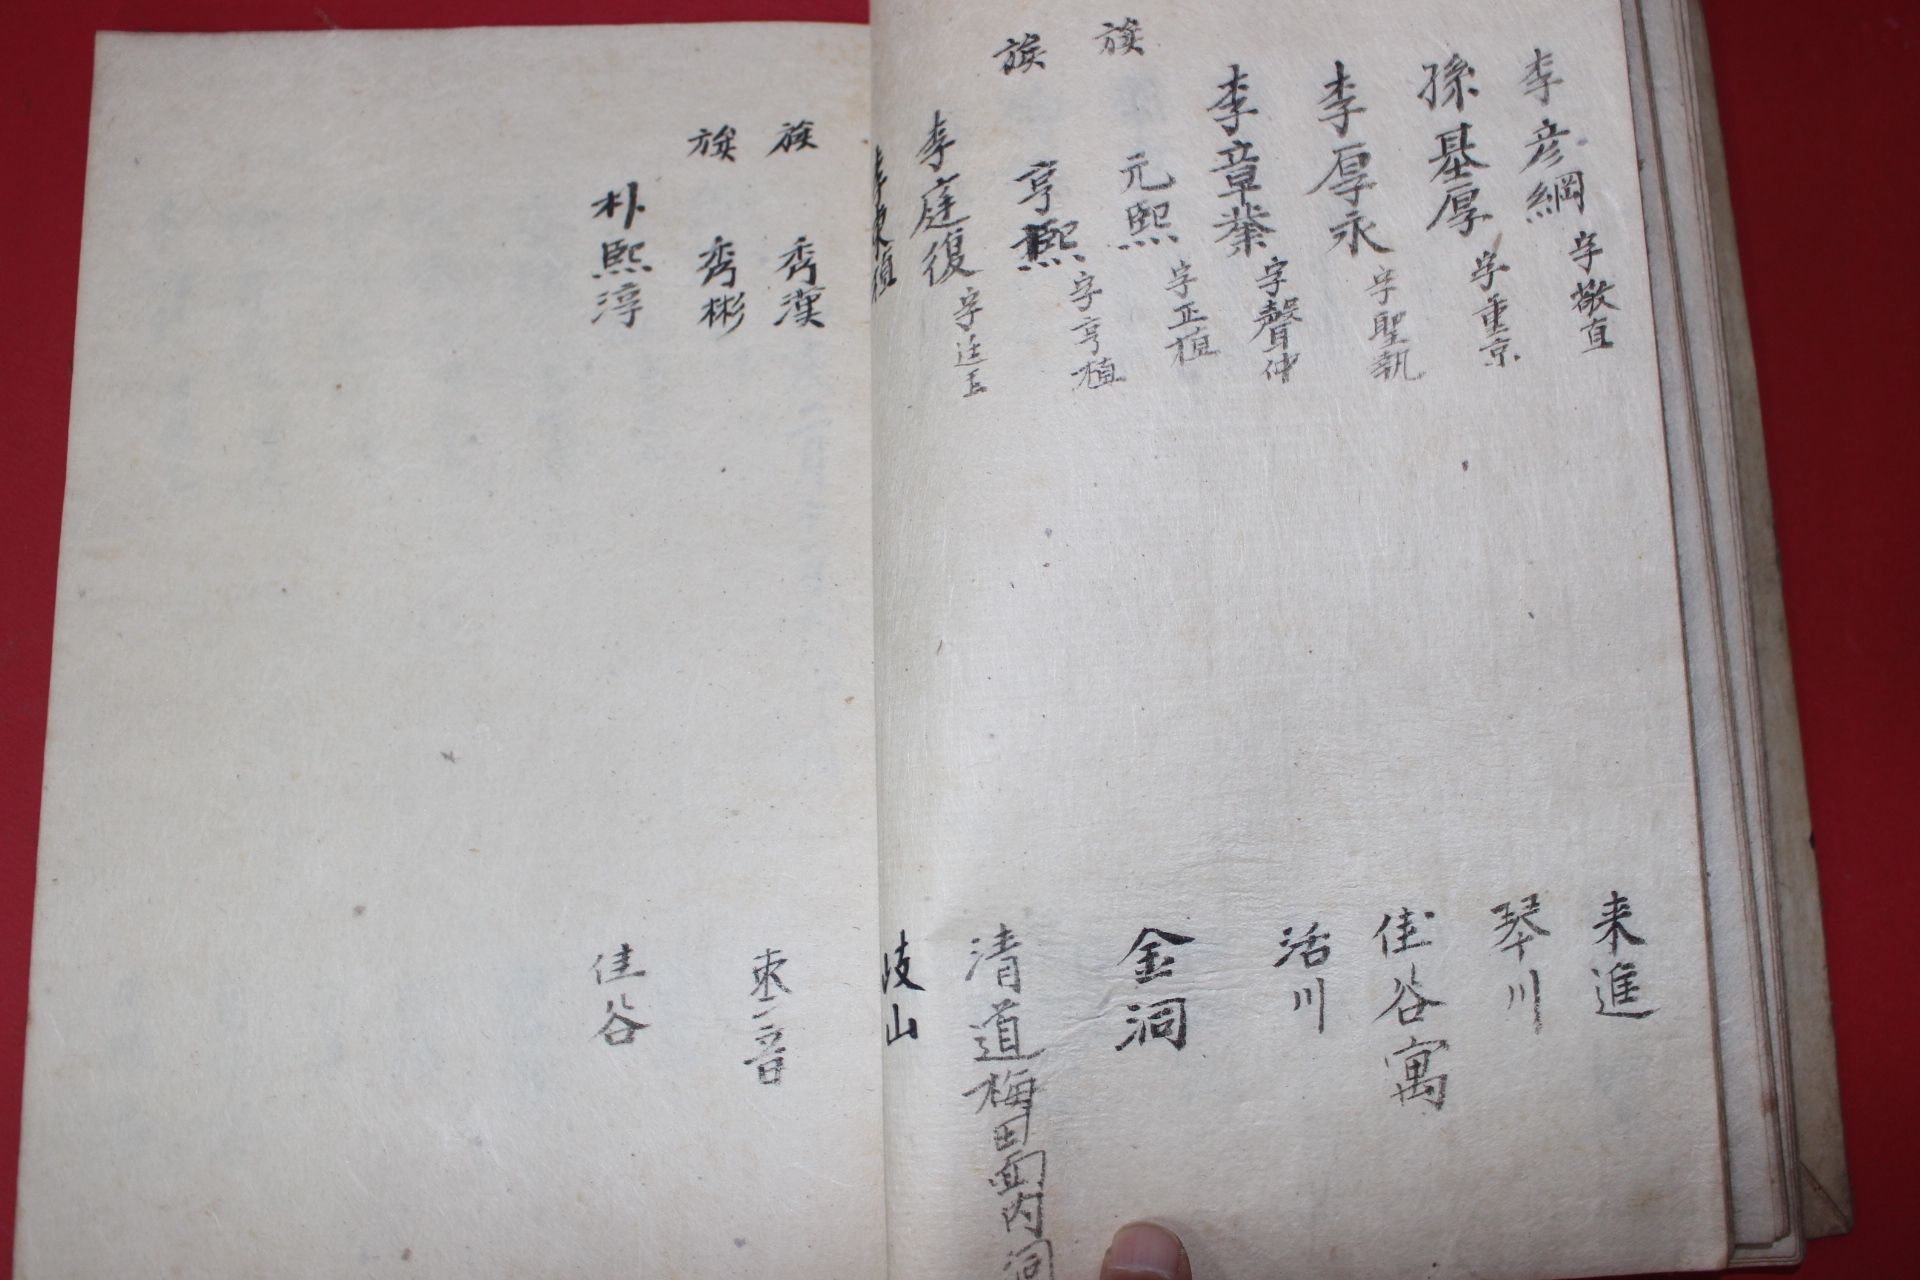 李彦綱 字敬直 来進
孫基厚 字重京 琴川
李厚永 字聖執 佳谷寓
李章 字聲仲 活川
族 元熙 字正植 金洞
族 亨熙 字亨植
李庭復 字廷玉 清道梅田面内洞
李東植 岐山
族 秀漢
族 秀彬
朴熙淳 佳谷